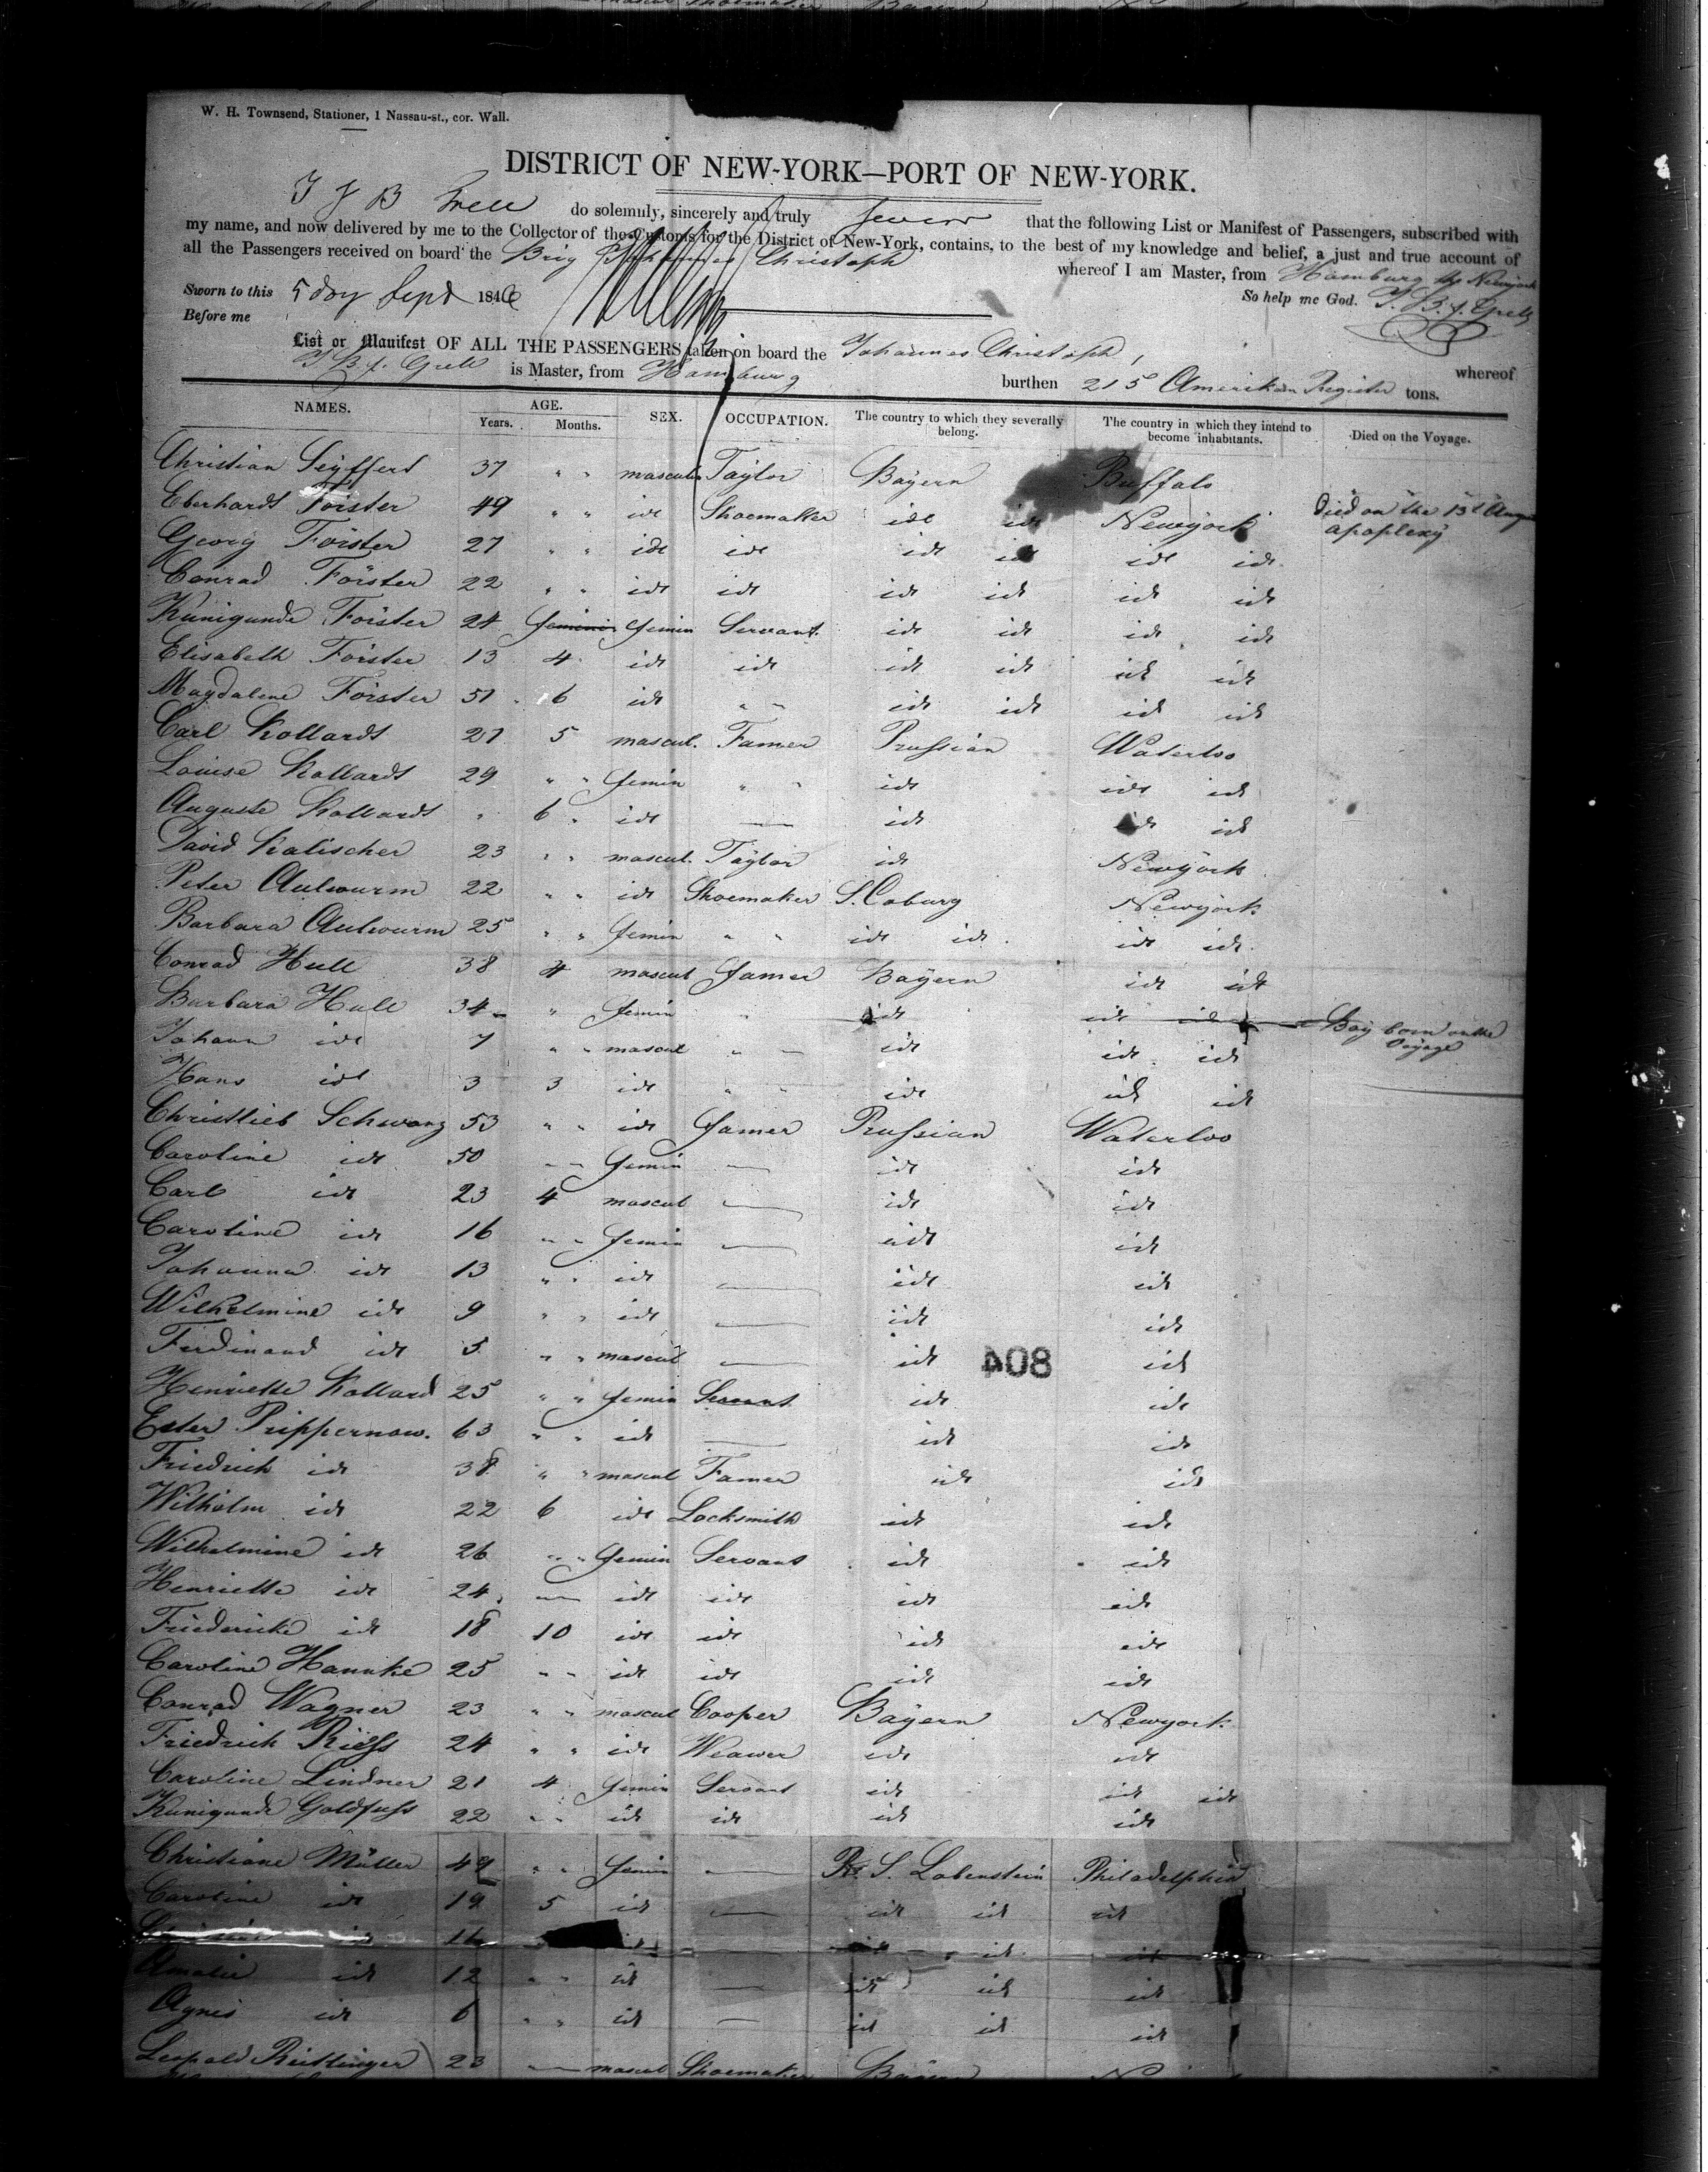 W. H. Townsend, Stationer, 1 Nassau-st., cor. Wall.
DISTRICT OF NEW-YORK—PORT OF NEW-YORK.
I J B Grell do solemnly, sincerely and truly swear that the following List or Manifest of Passengers, subscribed with
my name, and now delivered by me to the Collector of the Customs for the District of New-York, contains, to the best of my knowledge and belief, a just and true account of
all the Passengers received on board the Brig Johannes Christoph whereof I am Master, from Hamburg to Newyork
Sworn to this 5 day Sept 1846 So help me God. J. B. J. Grell
Before me
List or Manifest OF ALL THE PASSENGERS taken on board the Johannes Christoph, whereof
J B J. Grell is Master, from Hamburg burthen 215 Amerikan Register tons.
NAMES. AGE. Years. Months. SEX. OCCUPATION. The country to which they severally belong. The country in which they intend to become inhabitants. Died on the Voyage.
Christian Seyffert 37 " " mascul. Taylor Bayern Buffalo
Eberhardt Förster 49 " " idt Shoemaker idt idt Newyork Died on the 13t Aug apoplexy
Georg Förster 27 " " idt idt idt idt idt idt
Conrad Förster 22 " " idt idt idt idt idt idt
Kunigunde Förster 24 femin Servant. idt idt idt idt
Elisabeth Förster 13 4 idt idt idt idt idt idt
Magdalene Förster 51 6 idt " " idt idt idt idt
Carl Kollardt 27 5 mascul. Famer Prussian Waterloo
Louise Kollardt 29 " " femin " " idt idt idt
Auguste Kollardt " 6 " idt — idt idt idt
David Kalischer 23 " " mascul. Taylor idt Newyork
Peter Aulwurm 22 " " idt Shoemaker S. Coburg Newyork
Barbara Aulwurm 25 " " femin " " idt idt. idt idt.
Conrad Hull 38 4 mascul Famer Bayern idt idt
Barbara Hull 34 " femin " idt idt idt Boy born on the Voyage
Johann idt 7 " " mascul " " idt idt idt
Hans idt 3 3 idt " " idt idt idt
Christlieb Schwarz 53 " " idt Famer Prussian Waterloo
Caroline idt 50 " " femin — idt idt
Carl idt 23 4 mascul — idt idt
Caroline idt 16 " " femin — idt idt
Johanna idt 13 " " idt — idt idt
Wilhelmine idt 9 " " idt — idt idt
Ferdinand idt 5 " " mascul — idt idt
408
Henriette Kollard 25 " " femin Servant idt idt
Ester Prippernow. 63 " " idt — idt idt
Friedrich idt 38 " " mascul Famer idt idt
Wilhelm idt 22 6 idt Locksmith idt idt
Wilhelmine idt 26 " " femin Servant idt idt
Henriette idt 24 " idt idt idt idt
Friedericke idt 18 10 idt idt idt idt
Caroline Hannke 25 " " idt idt idt idt
Conrad Wagner 23 " " mascul Cooper Bayern Newyork
Friedrich Riess 24 " " idt Weawer idt idt
Caroline Lindner 21 4 femin Servant idt idt idt
Kunigunde Goldfuss 22 " " idt idt idt idt
Christiane Müller 49 " " femin — R. S. Lobenstein Philadelphia
Caroline idt 19 5 idt — idt idt idt
idt 16 idt idt idt idt
Amalie idt 12 " " idt — idt idt idt
Agnes idt 6 " " idt — idt idt idt
Leopold Reitlinger 23 — mascul Shoemaker Bayern